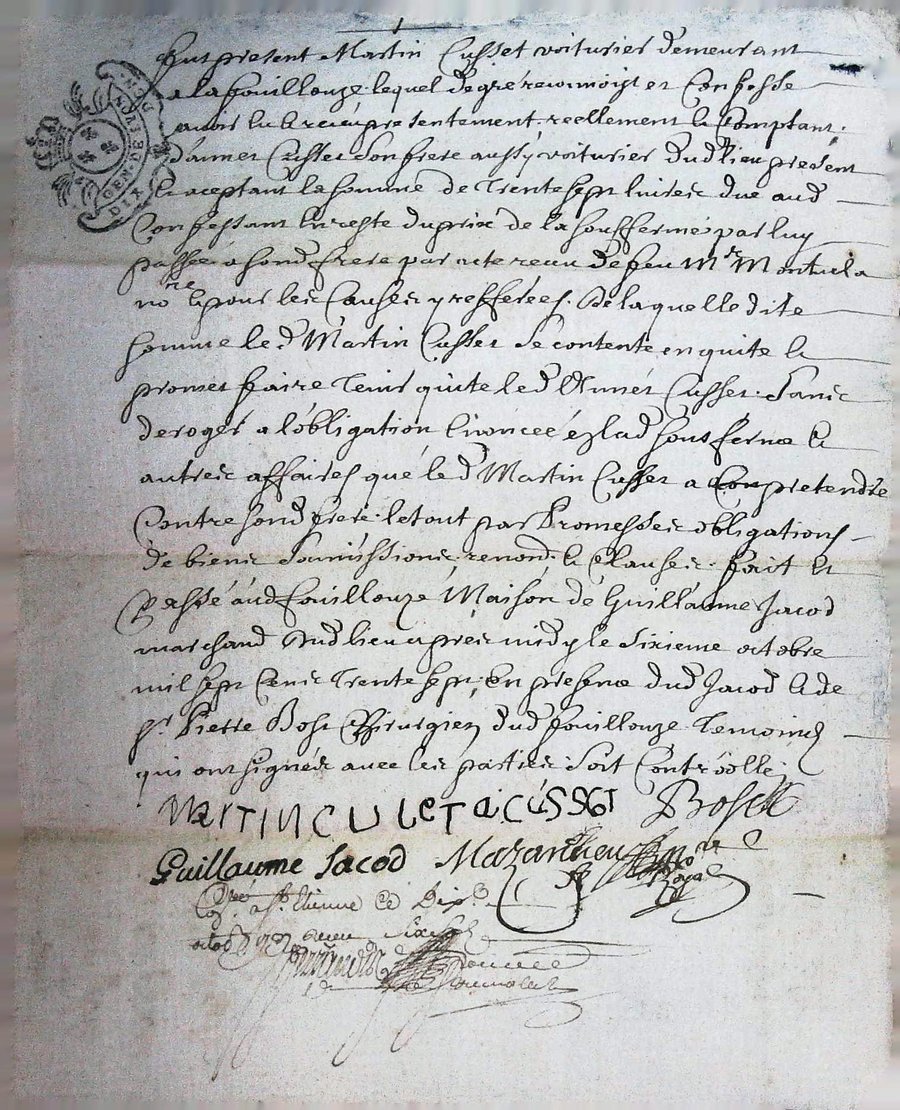 Fut present Martin Cusset voiturier demeurant
a la fouillouze lequel de gré reconnoist et Confesse
avoir eu & receu presentement reellement & Comptant
d'annet Cusset son frere aussy voiturier dud lieu present
& aceptant la somme de Trente sept livres due aud
Confessant en reste du prix de la sousferme par luy
passée a sond frere par acte receu de feu Mr Montula
nore & pour les Causes y refferées. De laquelle dite
somme led Martin Cusset se contente en quite &
promet faire tenir quite led Annet Cusset. Sans
deroger a l'obligation énoncée ez lad sousferme &
autres affaires que led Martin Cusset a pretendre
Contre sond frere. le tout par Promesses obligations
de biens soumissions, renond. & Clauses. fait et
passé aud fouillouze Maison de Guillaume Jacod
marchand dud lieu apres midy le sixieme octobre
mil sept cens Trente sept, en presence dud Jacod & de
sr Pierre Bost Chirurgien dud fouillouze Temoins
qui ont signés avec les parties soit Controollé
MarTIN CUSeT a CUSSeT Bost
Guillaume Jacod Mazandieu nore Royal
Coé. a St. Etienne ce Dix
octob